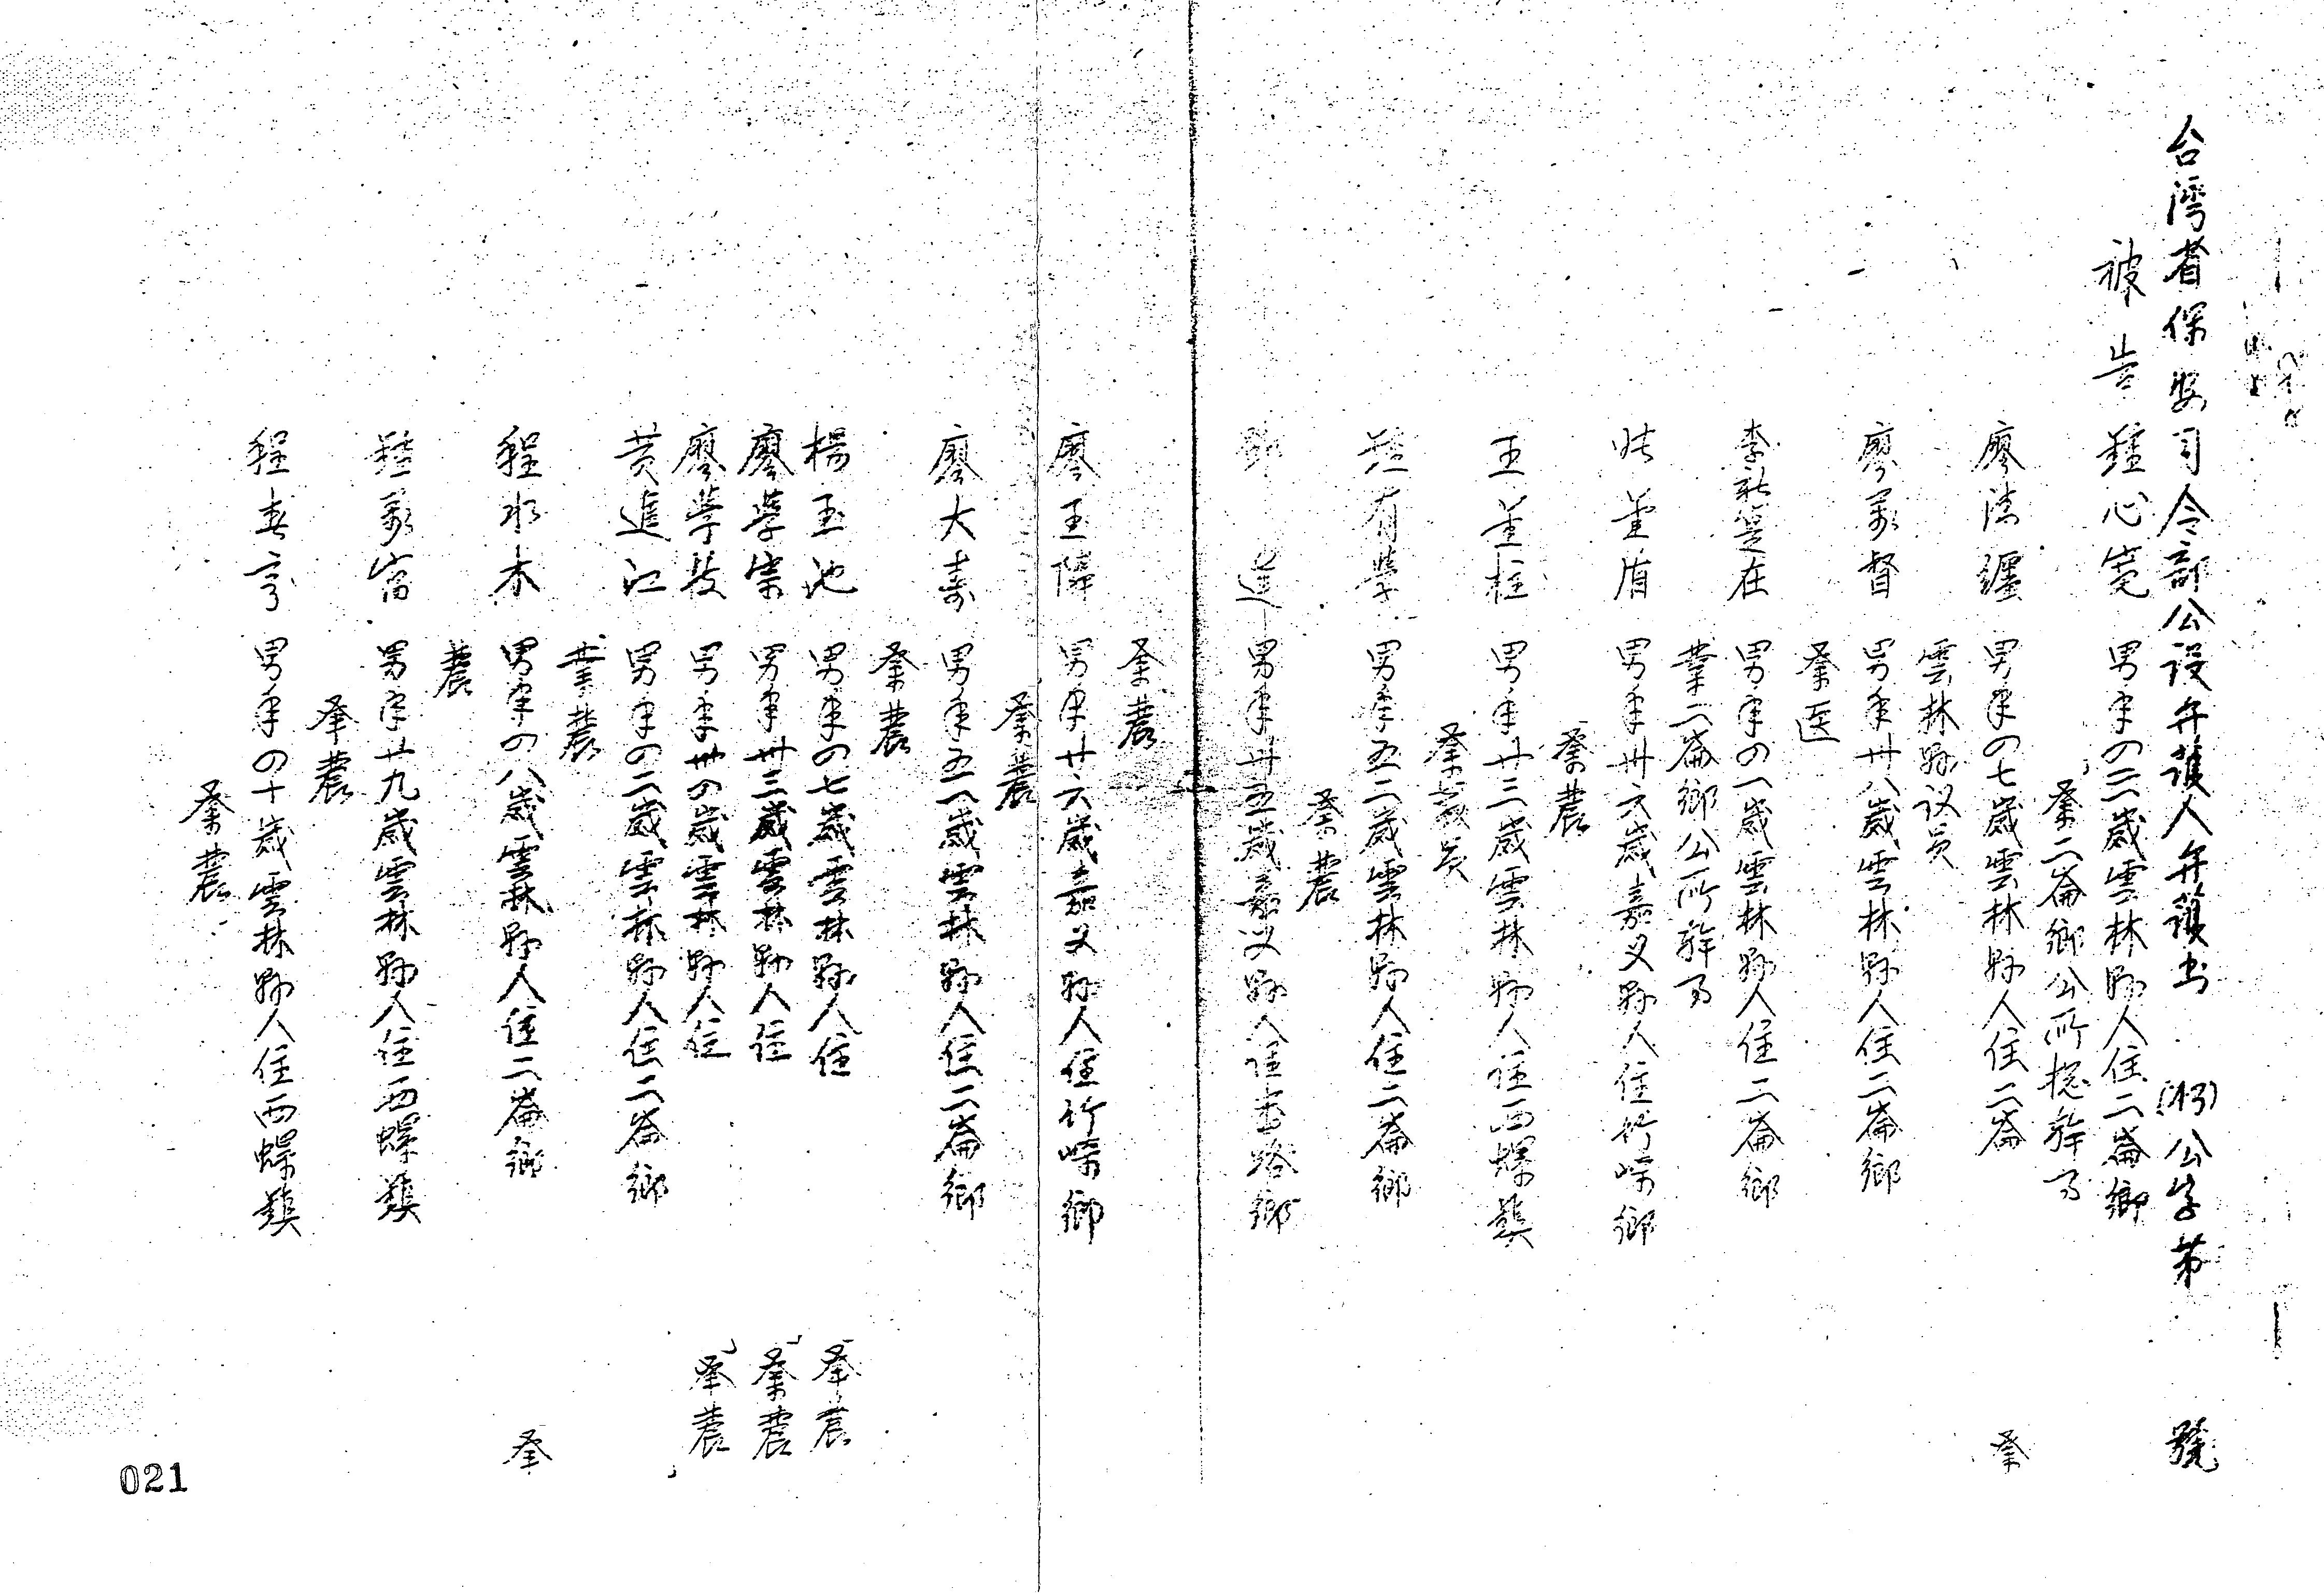 台湾省保安司令部公設弁護人弁護书 (43)公字第 號
被告 鍾心寛 男年四二歲雲林縣人住二崙鄉
業二崙鄉公所總幹事
廖清纏 男年四七歲雲林縣人住二崙 業
雲林縣议员
廖萬督 男年卅八歲雲林縣人住二崙鄉
業医
李新登在 男年四一歲雲林縣人住二崙鄉
業二崙鄉公所幹事
張董盾 男年卅六歲嘉义縣人住竹崎鄉
業農
王董柱 男年廿三歲雲林縣人住西螺鎮
業教员
鍾有學 男年五二歲雲林縣人住二崙鄉
業農
鄭造 男年卅五歲嘉义縣人住番路鄉
業農
廖王降 男年廿六歲嘉义縣人住竹崎鄉
業農
廖大壽 男年五一歲雲林縣人住二崙鄉
業農
楊玉池 男年四七歲雲林縣人住 業農
廖學崇 男年卅三歲雲林縣人住 業農
廖學枝 男年卅四歲雲林縣人住 業農
黄進江 男年四二歲雲林縣人住二崙鄉
業農
程水木 男年四八歲雲林縣人住二崙鄉 業
農
鍾萬富 男年廿九歲雲林縣人住西螺鎮
業農
程春亨 男年四十歲雲林縣人住西螺鎮
業農
021